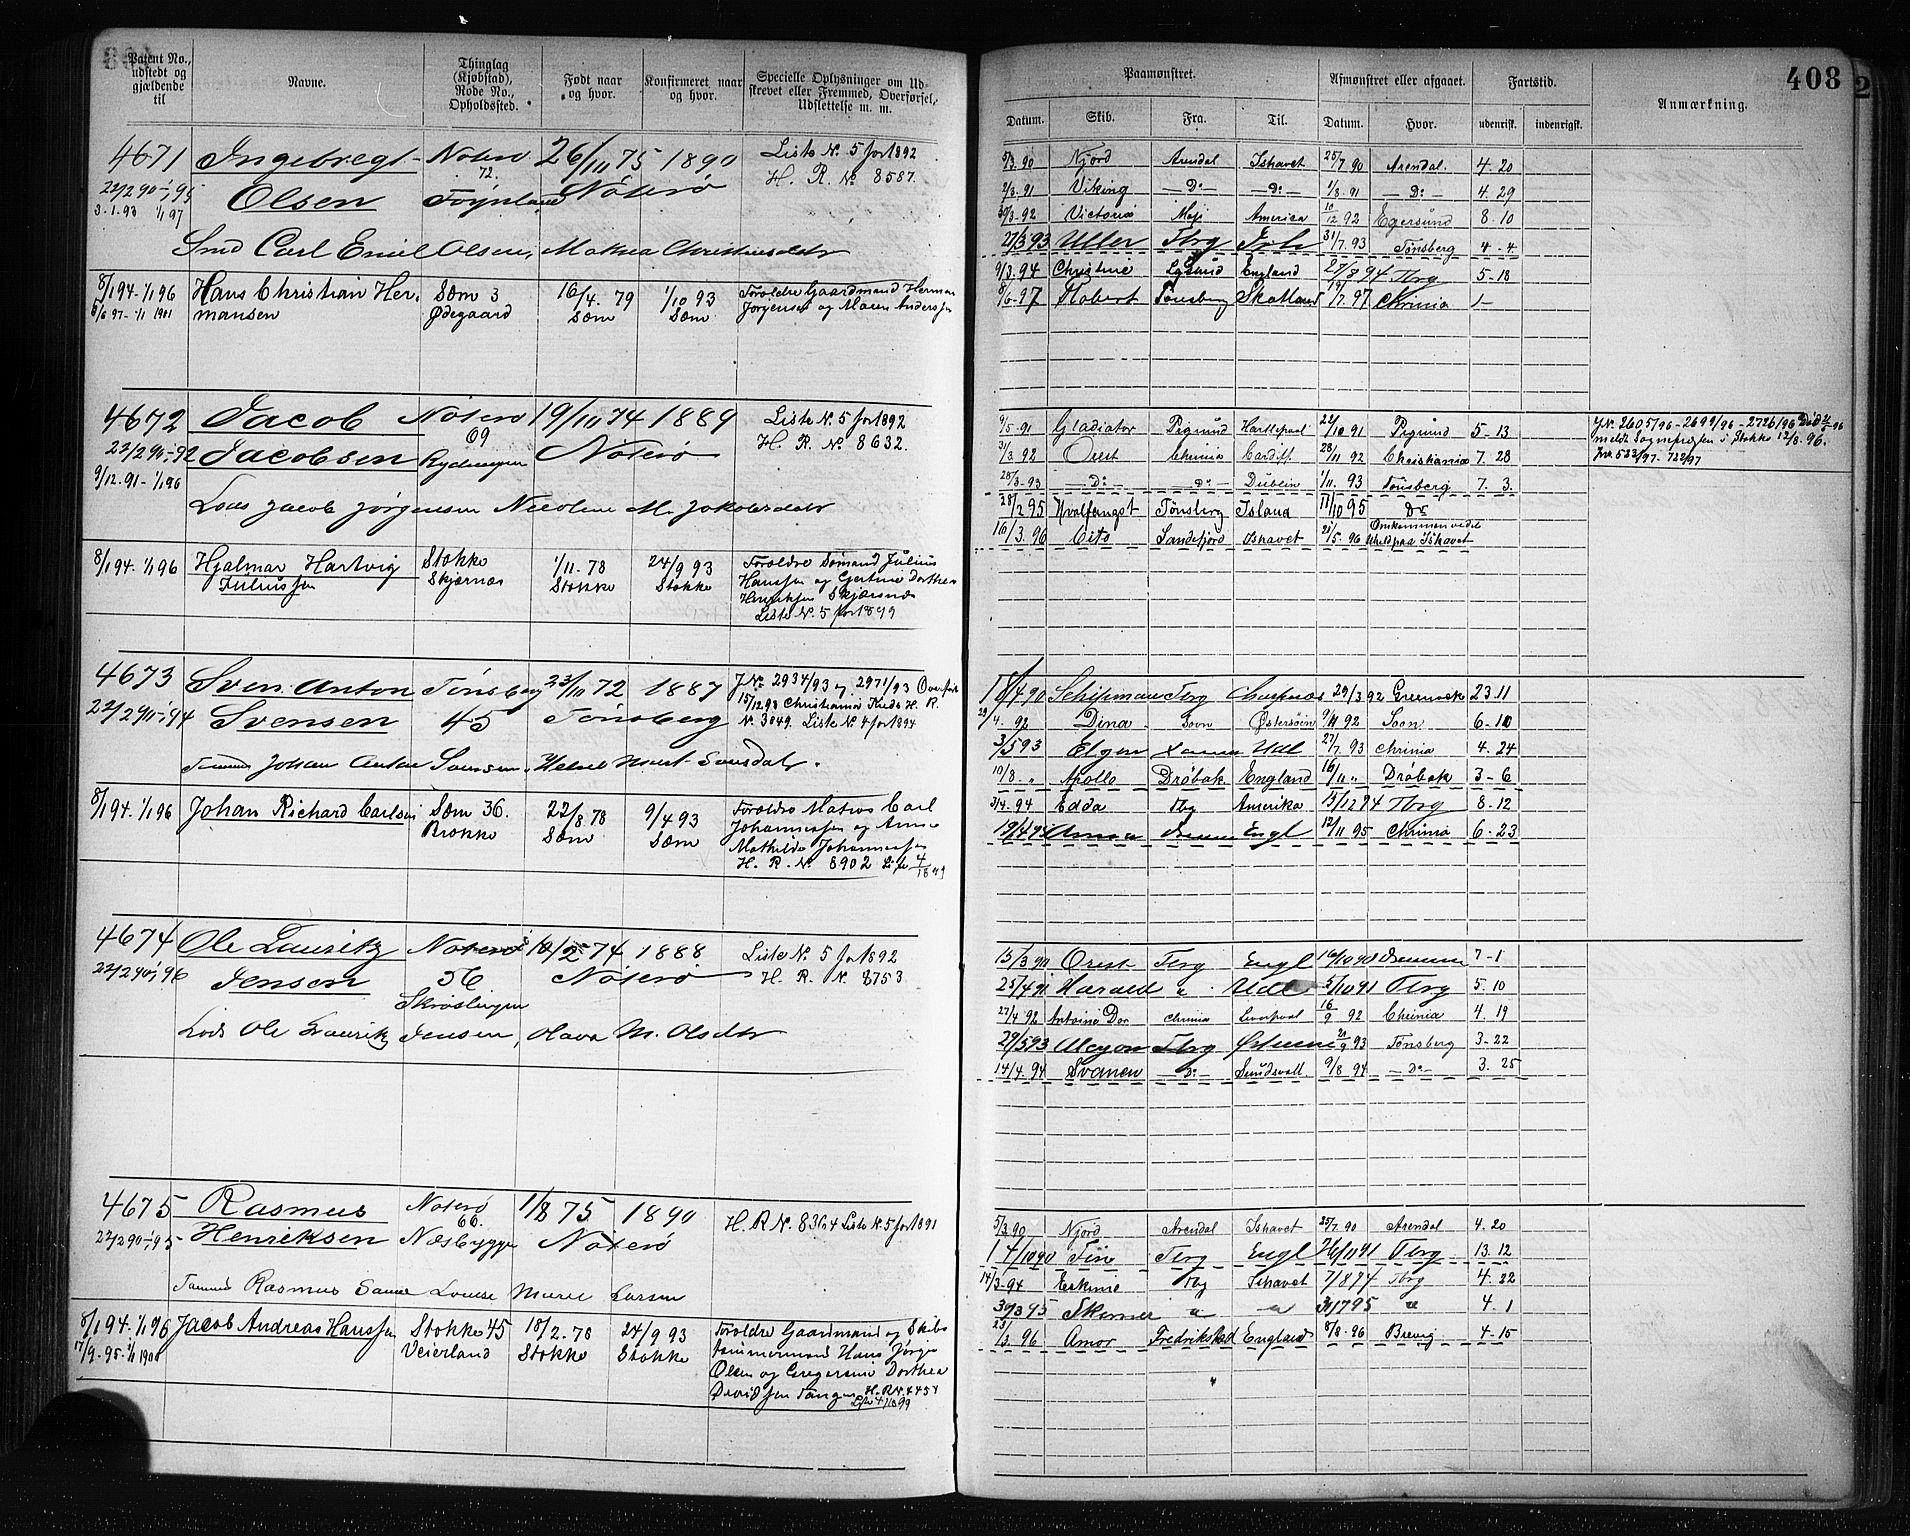 408
Patent No., udstedt og gjældende til
Navne.
Thinglag (Kjøbstad), Rode No., Opholdssted.
Født naar og hvor.
Konfirmeret naar og hvor.
Specielle Oplysninger om Udskrevet eller Fremmed, Overførsel, Udslettelse m. m.
Paamønstret.
Afmønstret eller afgaaet.
Fartstid.
Anmærkning.
Datum. Skib. Fra. Til. Datum. Hvor. udenrigsk. indenrigsk.
4671 Ingebregt Nøterø 26/10 75 1890 Liste N. 5 for 1892
72. H. R. No 8587.
Olsen Føynland Nøterø
3.1.93 1/1 97
Smd Carl Emil Olsen,
8/1 94-1/1 96 Hans Christian Her- Sæm 3 16/4. 79 1/10 93 Forældre Gaardmand Herman
mansen Ødegaard Sæm Sæm Jørgensen og Maren
5/3.90 Njord Arendal Ishavet 25/7 90 Arendal. 4.20
Viking —Do— —Do— 1/8.91 —Do— 4.29
30/3.92 Victoria Moss America 10/12 92 Egersund 8-10
27/3 93 Uller Tbrg 31/7.93 Tønsberg 4-4
9/3.94 Christine England 27/8 94 Tbrg 5-18
8/6-97 Robert Tønsberg Skotland 19/7.97 Chrinia 1-
4672 Jacob Nøterø 19/10 74 1889 Liste N. 5 for 1892
69 H. R. No 8632.
Jacobsen Nøterø
9/12.91-1/1 96
Lods Jacob Jørgensen Nicoline M. Jakobsdatter
8/1 94.1/1 96 Hjalmar Hartvig Stokke 1/11.78 24/9 93 Forældre Sømand Julius
Juliussen Skjærnæs Stokke Stokke Hanssen og Gjertine Dorthea
Henriksen Skjærsnæs
Liste N. 5 for 1899
6/5-91 Gladiator Hartlepool 22/10 91 5-13
31/3 92 Orest Chrinia Cardiff 28/11 92 Christiania 7.28
28/3-93 —Do— —Do— Dublin 1/11.93 Tønsberg 7.3.
28/2 95 Hvalfangst Tønsberg Island 11/10 95 Do
16/3.96 Sandefjord Ishavet 21/5.96 Omkommen ved
Ishavet
J.N. 2605/96-2699/96-2726/96
meldt Sognepresten i Stokke 12/8.96.
Jno. 523/97- 722/97
4673 Sven Anton Tønsberg 23/10 72 1887 J.No 2934/93 og 2971/93
22/2 90-1/1 94 Svensen 45 Tønsberg 15/12 93 Christiania Kreds H. R.
N. 3049. Liste N. 4 for 1894
Johan Anton Svensen,
8/1 94.1/1 96 Johan Richard Carlsen Sæm 36. 22/8.78 9/4 93 Forældre Matros Carl
Brokke Sæm Sæm Johannessen og Anne
Mathilde Johannessen
H. R. No 8902
18/4 90 Schipman Tbrg 29/3 92 Greenock 23 11
29/4.92 Dina Soon Østersøen 9/11 92 Soon 6-10
3/5 93 Udl 27/7.93 Chrinia 4.24
10/8.„ Apollo Drøbak England 16/11 „ Drøbak 3-6
3/4-94 Edda Tbg Amerika 15/12 94 Tbrg 8.12
19/4 95 Anna Engl 12/11 95 Chrinia 6.23
4674 Ole Lauritz Nøterø 10/2 74 1888 Liste N. 5 for 1892
22/2 90-1/1 96 Jensen 56 Nøterø H. R. N. 8753
Lods Ole Lauritz Jensen, Olava M. Olsdtr
15/3 90 Orest Tbrg Engl 16/10 90 Drammen 7-1
25/4 91 Harald „ Udl 5/10 91 Tbrg 5.10
27/4 92 Chrinia Liverpool 16/9 92 Chrinia 4.19
29/5 93 Alcyon Tbrg 20/9 93 Tønsberg 3-22
14/4.94 Svanen —Do— Sundsvall 9/8 94 —Do— 3.25
4675 Rasmus Nøterø 1/8 75 1890 H. R N. 8364 Liste N. 5 for 1891
66.
22/2 90-1/1 95 Henriksen Næsbrygge Nøterø
Rasmus Marie Larsen
8/1 94.1/1 96 Jacob Andreas Hanssen Stokke 45 18/2.78 24/9 93 Forældre Gaardmand og Skibs
17/9-95-1/1 1900 Veierland Stokke Stokke tømmermand Hans Jørgen
Olsen og Gregersine Dorthea
Davidsen Tangen
5/3.90 Njord Arendal Ishavet 25/7.90 Arendal 4.20
14/10 90 Tbrg Engl 26/10 91 Tbrg 13.12
14/3-94 Erikine Tbg Ishavet 7/8 94 Tbrg 4.22
30/3 95 „ „ 31/7 95 „ 4.1
23/3.96 Amor Fredrikstad England 8/8-96 Brevig 4-15